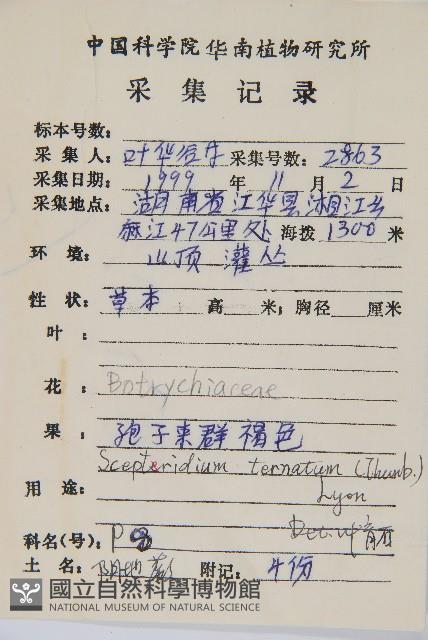 中国科学院华南植物研究所
采集记录
标本号数：
采集人：叶华谷 采集号数：2863
采集日期：1999 年 11 月 2 日
采集地点：湖南省江华县湘江乡
麻江47公里处 海拨 1300 米
环境：山顶 灌丛
性状：草本 高 米；胸径 厘米
叶：
花：Botrychiaceae
果：孢子束群 褐色
Scepteridium ternatum (Thunb.)
Lyon
用途：
Det. 叶育石
科名(号)：P
土名：阴地蕨 附记：4份
國立自然科學博物館
NATIONAL MUSEUM OF NATURAL SCIENCE